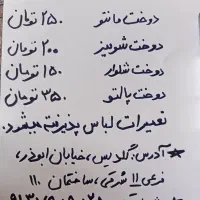 دوخت مانتو ۲۵۰ تومان
دوخت شومیز ۲۰۰ تومان
دوخت شلوار ۱۵۰ تومان
دوخت پالتو ۳۵۰ تومان
تعمیرات لباس پذیرفته میشود.
★ آدرس: گلدیس، خیابان ابوذر،
فرعی ۱۱ شرقی، ساختمان ۱۱۰